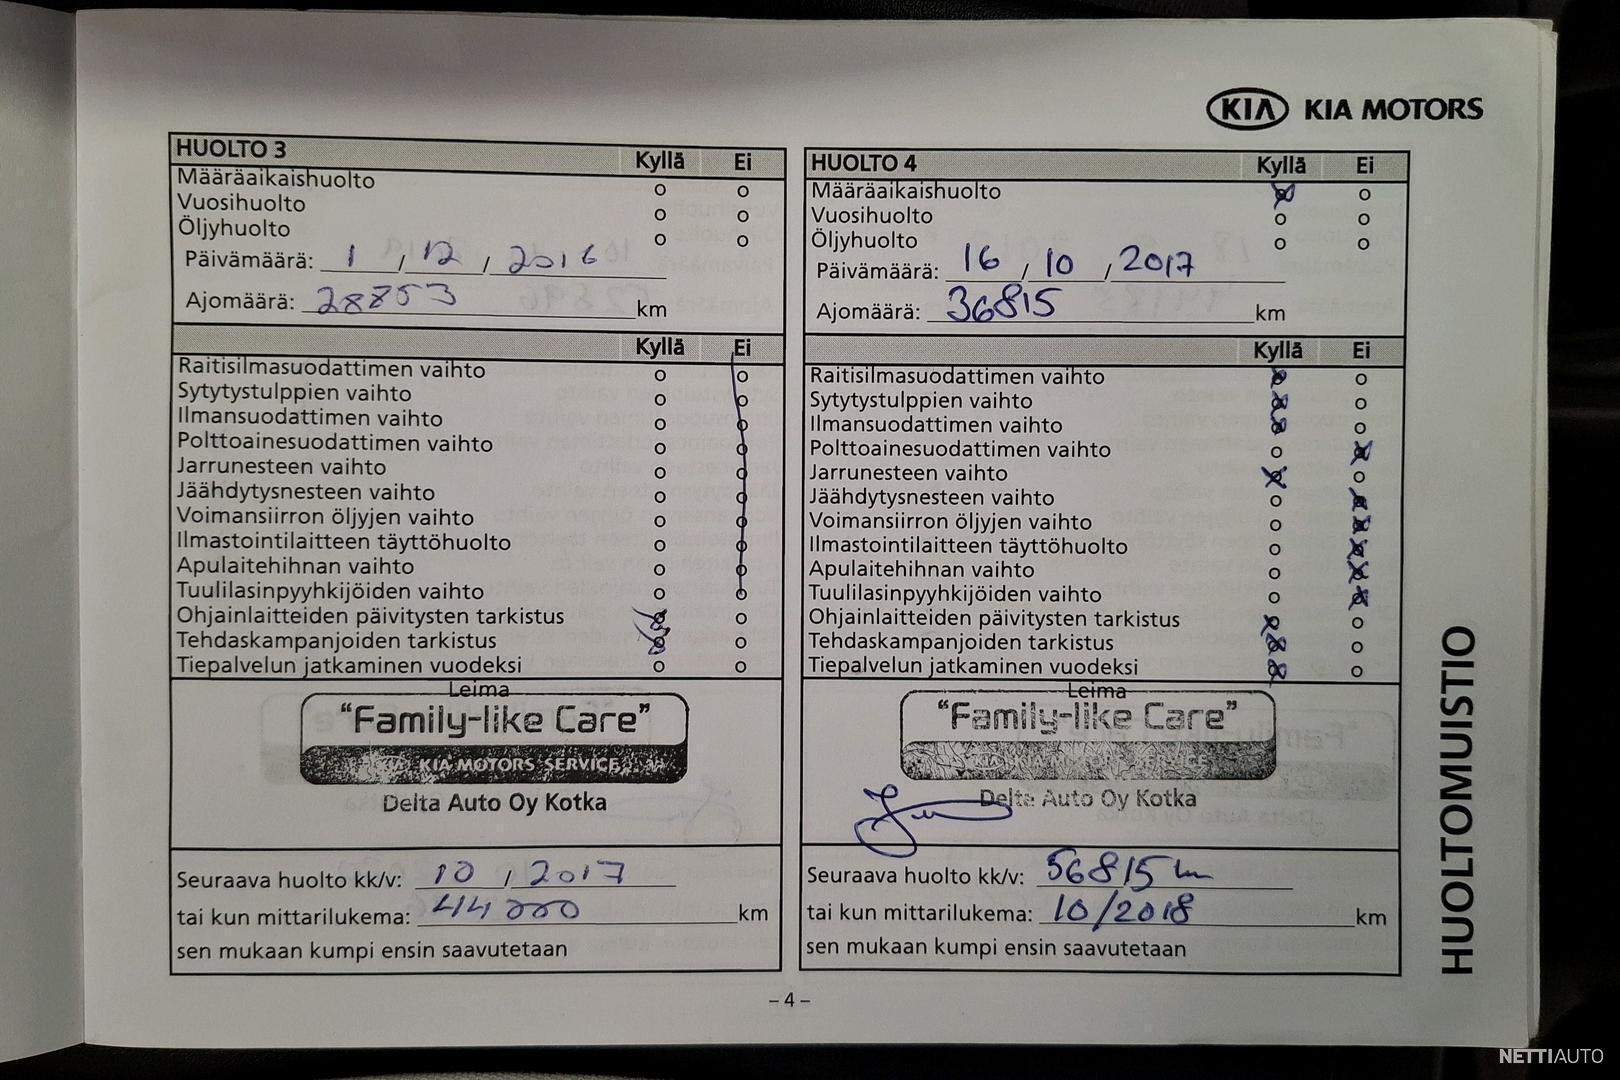 KIA KIA MOTORS
HUOLTO 3 Kyllä Ei
Määräaikaishuolto o o
Vuosihuolto o o
Öljyhuolto o o
Päivämäärä: 1 / 12 / 2016
Ajomäärä: 28853 km
Kyllä Ei
Raitisilmasuodattimen vaihto o o
Sytytystulppien vaihto o o
Ilmansuodattimen vaihto o o
Polttoainesuodattimen vaihto o o
Jarrunesteen vaihto o o
Jäähdytysnesteen vaihto o o
Voimansiirron öljyjen vaihto o o
Ilmastointilaitteen täyttöhuolto o o
Apulaitehihnan vaihto o o
Tuulilasinpyyhkijöiden vaihto o o
Ohjainlaitteiden päivitysten tarkistus o o
Tehdaskampanjoiden tarkistus o o
Tiepalvelun jatkaminen vuodeksi o o
Leima
"Family-like Care"
KIA MOTORS SERVICE
Delta Auto Oy Kotka
Seuraava huolto kk/v: 10 / 2017
tai kun mittarilukema: 44000 km
sen mukaan kumpi ensin saavutetaan
HUOLTO 4 Kyllä Ei
Määräaikaishuolto o o
Vuosihuolto o o
Öljyhuolto o o
Päivämäärä: 16 / 10 / 2017
Ajomäärä: 36815 km
Kyllä Ei
Raitisilmasuodattimen vaihto o o
Sytytystulppien vaihto o o
Ilmansuodattimen vaihto o o
Polttoainesuodattimen vaihto o o
Jarrunesteen vaihto o o
Jäähdytysnesteen vaihto o o
Voimansiirron öljyjen vaihto o o
Ilmastointilaitteen täyttöhuolto o o
Apulaitehihnan vaihto o o
Tuulilasinpyyhkijöiden vaihto o o
Ohjainlaitteiden päivitysten tarkistus o o
Tehdaskampanjoiden tarkistus o o
Tiepalvelun jatkaminen vuodeksi o o
Leima
"Family-like Care"
KIA MOTORS SERVICE
Delta Auto Oy Kotka
Seuraava huolto kk/v: 56815 km
tai kun mittarilukema: 10/2018 km
sen mukaan kumpi ensin saavutetaan
HUOLTOMUISTIO
– 4 –
NETTIAUTO